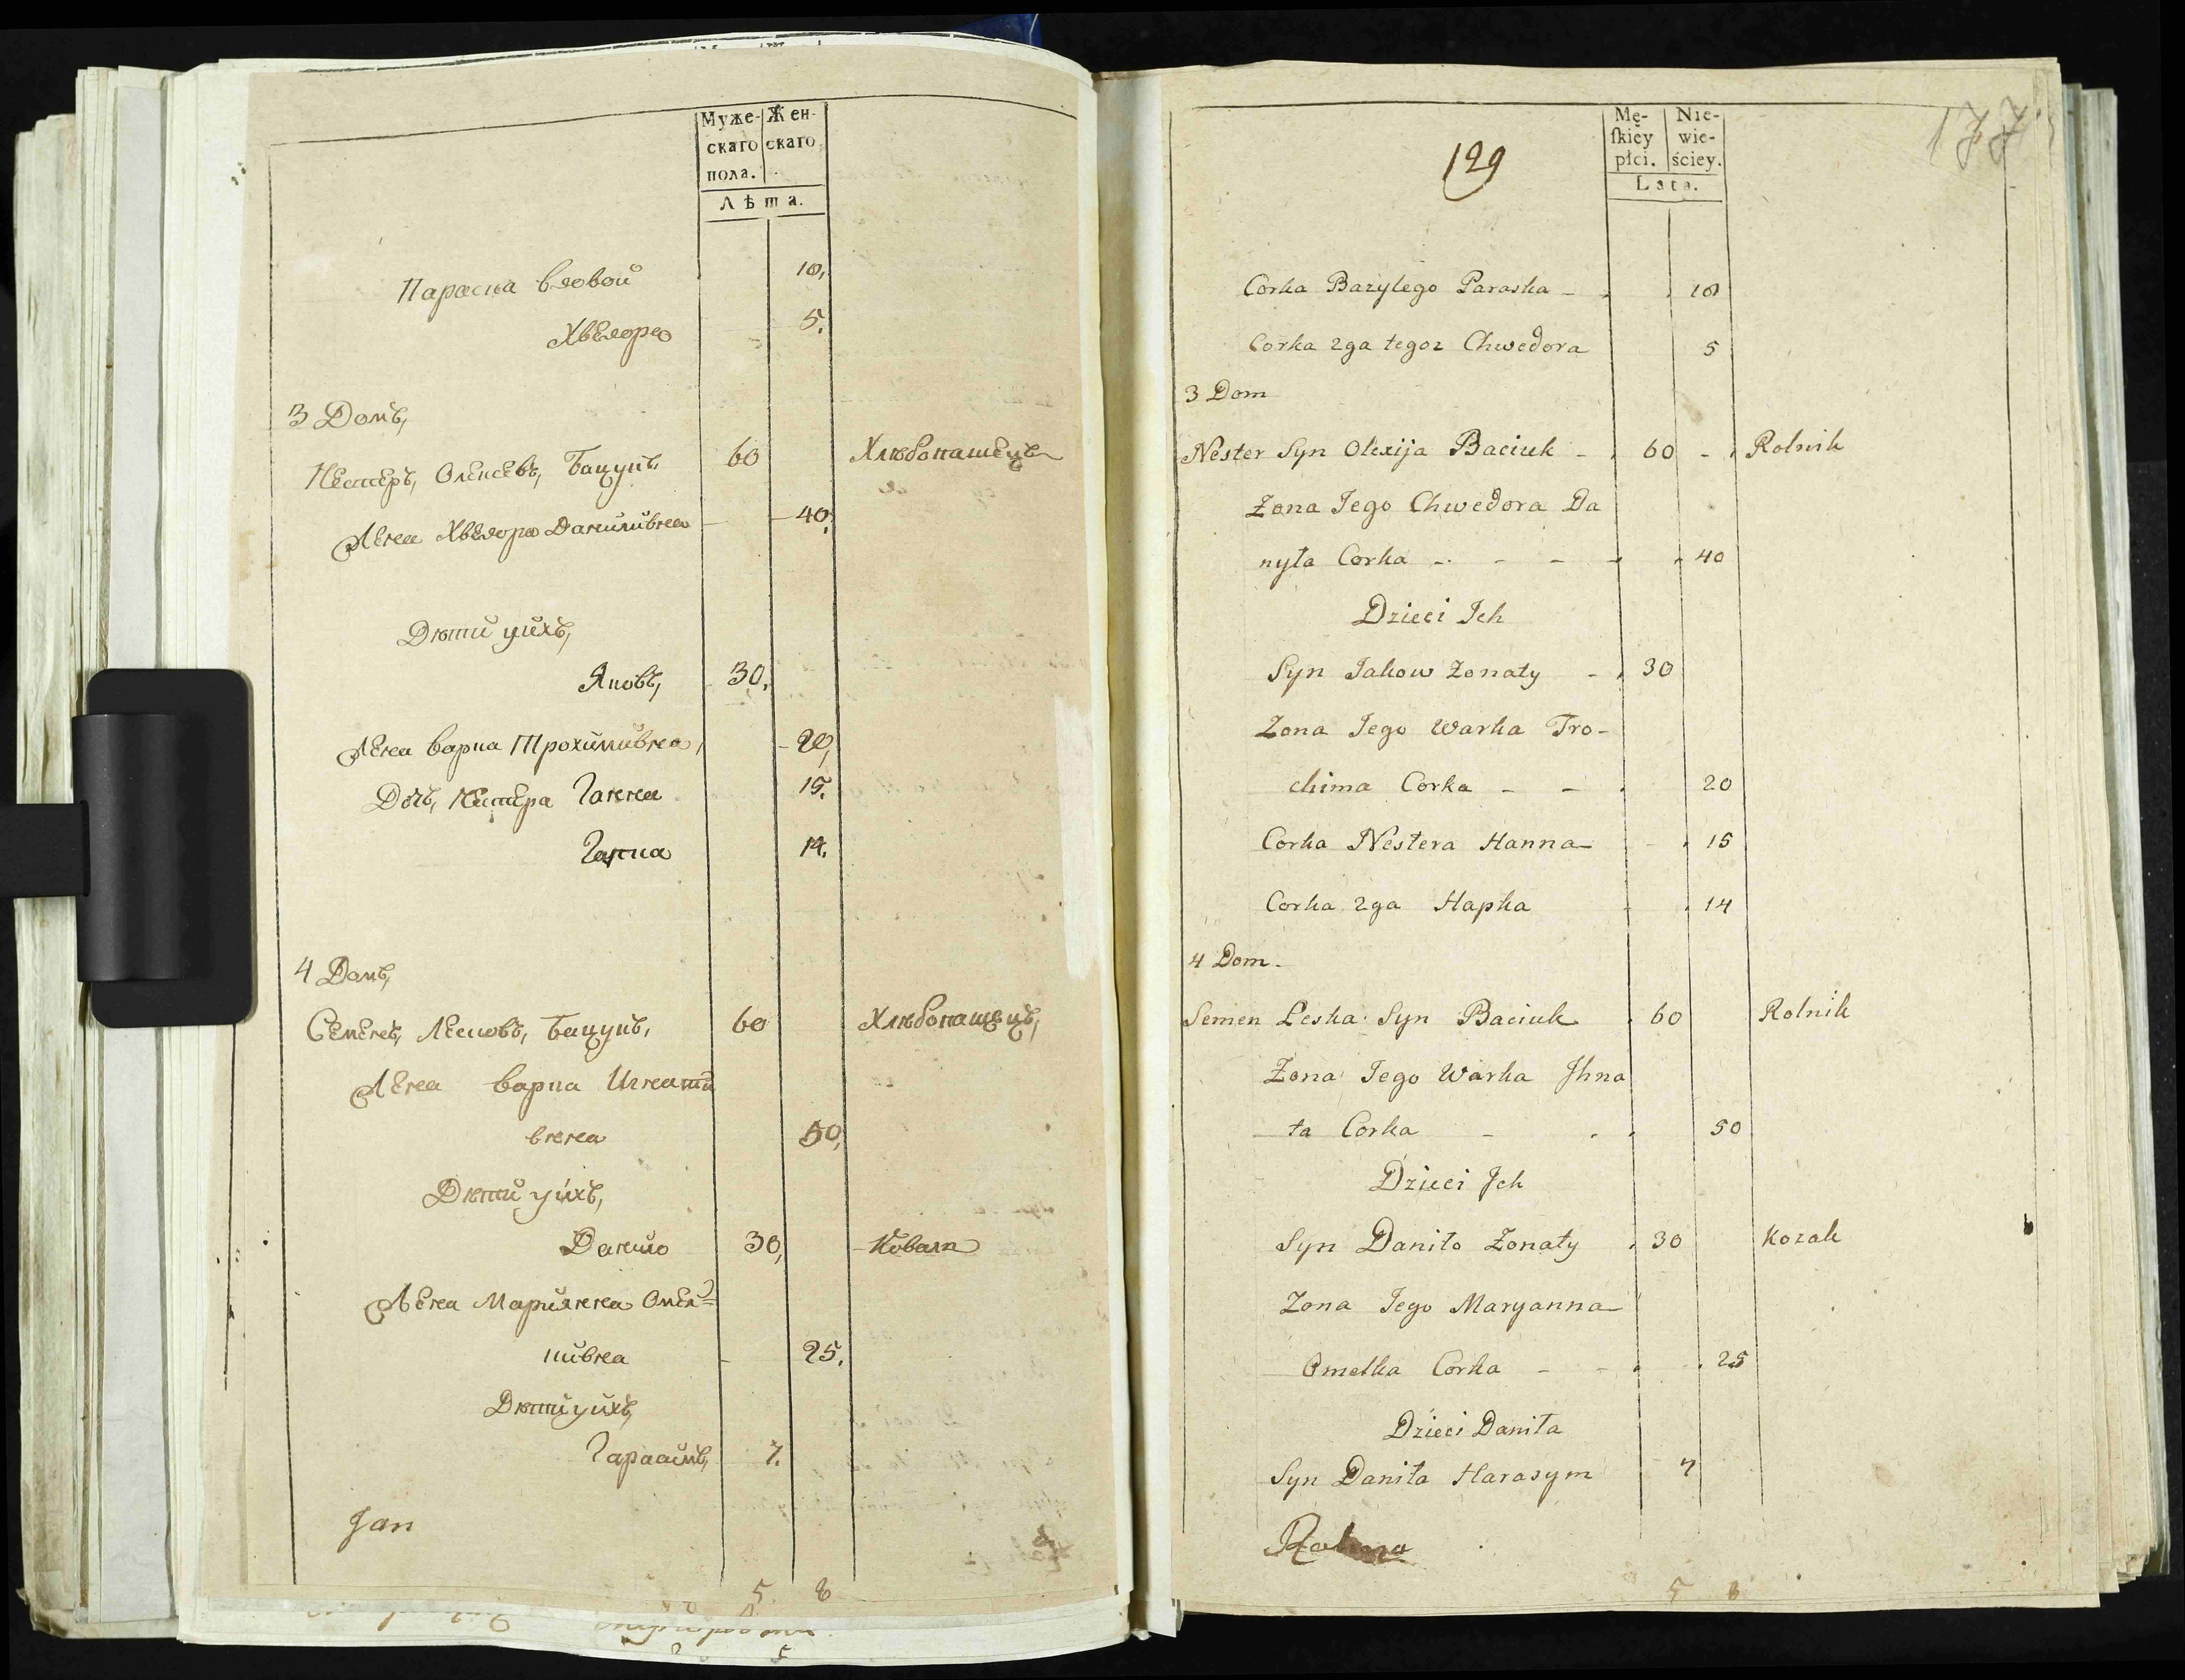 Муже- Жен-
скаго скаго
пола.
Лѣта.
Параска вдовой 10,
Хведора 5.
3 Домъ,
Нестеръ, Олексѣевъ, Бацукъ 60 Хлѣбопашецъ
Жена Хведора Даниливна 40,
Дѣти ихъ,
Яковъ, 30,
Жена Варка Трохимивна, 20,
Дочь, Нестера Ганна 15.
Гапка 14.
4 Домъ,
Семенъ, Лесковъ, Бацукъ, 60 Хлѣбопашецъ,
Жена Варка Игнати
вна 50,
Дѣти ихъ,
Данило 30, Коваль
Жена Марианна Омел=
кивна 25,
Дѣти ихъ,
Гарасимъ, 7.
Jan
5 8
177
129
Mę- Nie-
ſkiéy wie-
płci. ściey.
Lata.
Corka Bazylego Paraska - 10
Corka 2ga tegoz Chwedora 5
3 Dom
Nester Syn Olexija Baciuk - 60 - Rolnik
Zona Jego Chwedora Da
nyła Corka - - - 40
Dzieci Jch
Syn Jakow Zonaty - 30
Zona Jego Warka Tro-
chima Corka - - 20
Corka Nestera Hanna 15
Corka 2ga Hapka 14
4 Dom.
Semen Leska Syn Baciuk 60 Rolnik
Zona Jego Warka Jhna
ta Corka - 50
Dzieci Jch
Syn Daniło Zonaty 30 Kozak
Zona Jego Maryanna
Omelka Corka - - 25
Dzieci Daniła
Syn Daniła Harasym 7
5 8